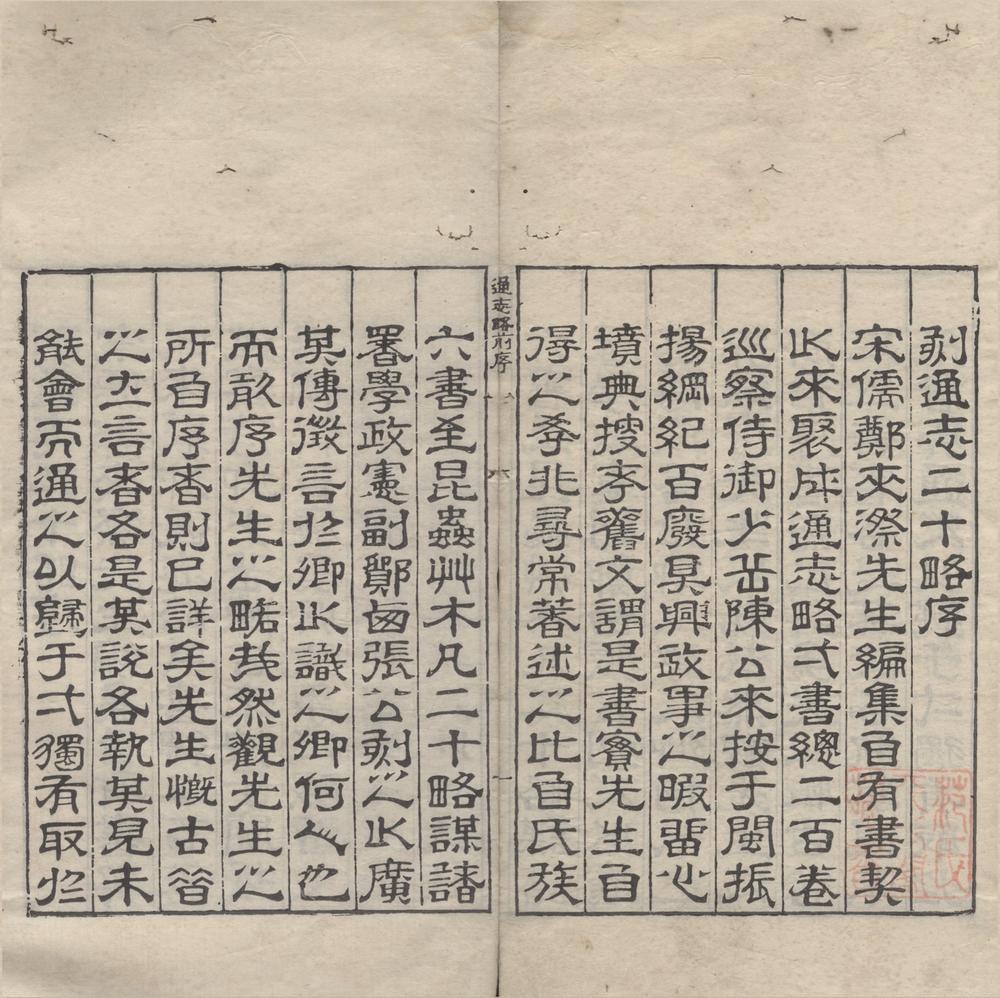 刻通志二十略序
宋儒鄭夾漈先生編集自有書契
以來聚成通志略一書總二百卷
巡察侍御少岳陳公來按于閩振
揚綱紀百廢具興政事之暇畱心
墳典搜奇舊文謂是書實先生自
得之學非尋常著述之比自氏族
通志略前序
一
六書至昆蟲艸木凡二十略謀諸
署學政憲副鄭崶張公刻之以廣
其傳徵言於卿以識之卿何人也
而敢序先生之略哉然觀先生之
所自序者則已詳矣先生慨古㫺
之立言者各是其說各執其見未
能會而通之以歸于一獨有取於